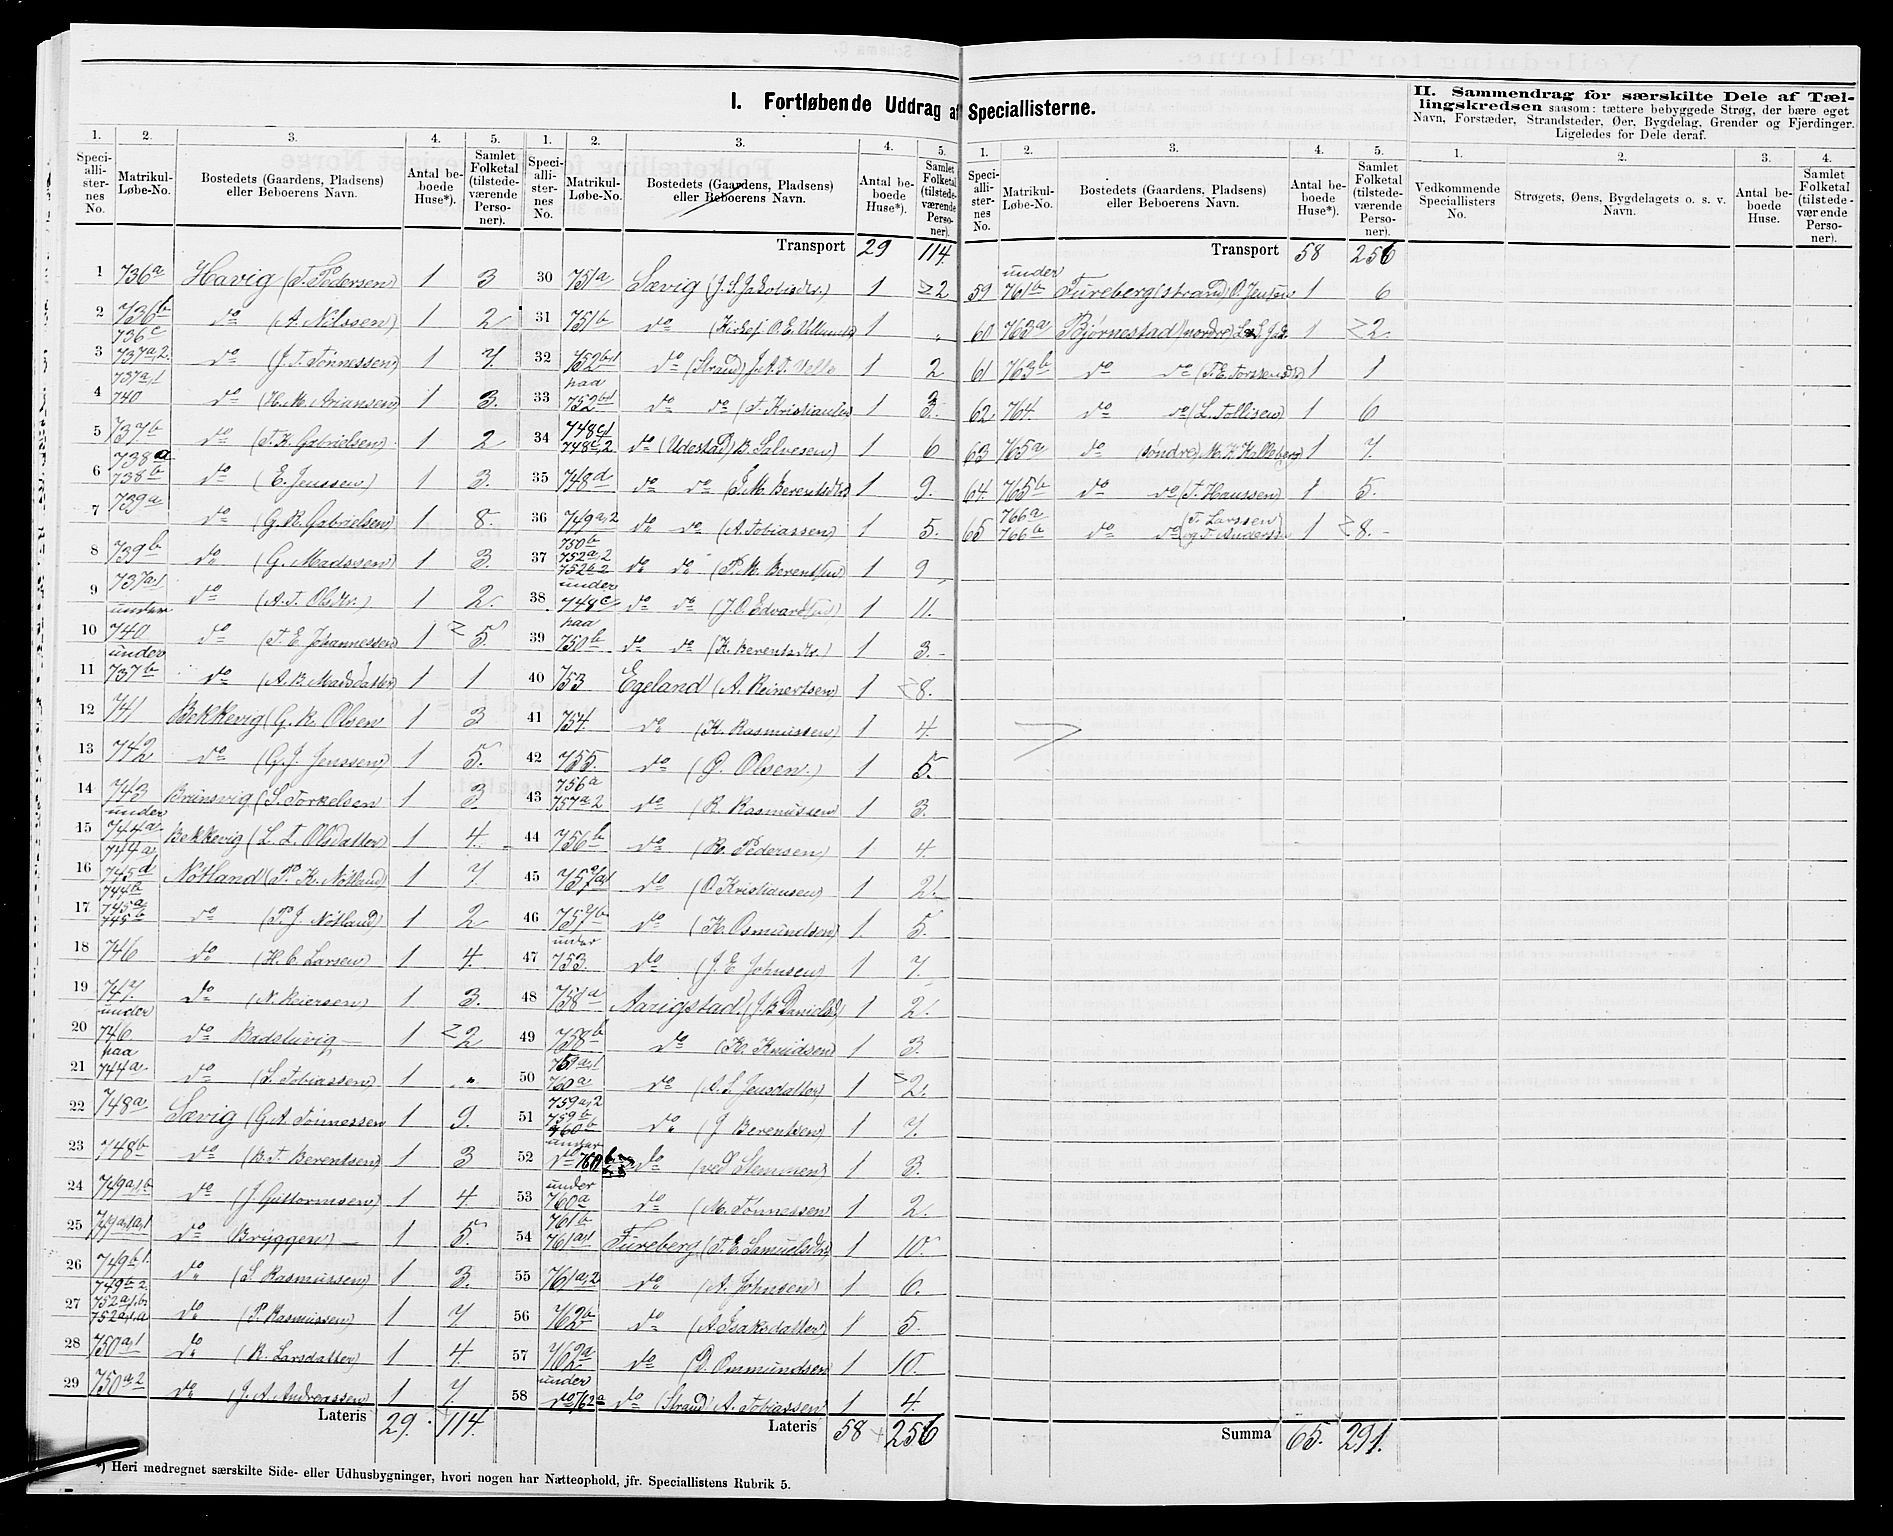 I. Fortløbende Uddrag af Speciallisterne.
1. 2. 3. 4. 5.
Speciallisternes No. Matrikul-Løbe-No. Bostedets (Gaardens, Pladsens) eller Beboerens Navn. Antal beboede Huse*). Samlet Folketal (tilstedeværende Personer).
1 736a Havig (T. Pedersen) 1 3
2 736b 736c do (A. Nilssen) 1 2
3 737a,2. do (J. T. Tønnessen) 1 7.
4 737a,1 740 do (H. M. Ariansen) 1 3.
5 737b do (T. K. Gabrielsen) 1 2
6 738a 738b do (E. Jenssen) 1 3.
7 739a do (G. R. Gabrielsen) 1 8.
8 739b do (G. Madssen) 1 3.
9 737a,1 do (A. T. Olsdtr.) 1 2.
10 under 740 do (T. E. Johannessen) 1 5.
11 under 737b do (A. B. Madsdatter) 1 1
12 741 Bekkevig (G. R. Olsen 1 3
13 742 do (G. J. Jenssen) 1 5.
14 743 Brunsvig (S. Torkelsen 1 3.
15 under 744a Bekkevig (L. T. Olsdatter 1 4.
16 744a 745d Nötland (P. K. Nötland) 1 7.
17 744b 745a 745b do (P. J. Nötland) 1 2
18 746 do (H. C. Larsen) 1 4.
19 747. do (N. Reiersen) 1 3.
20 under 746 do Badstuvig 1 2
21 paa 744a. do (L. Tobiassen) 1 "
22 748a Sævig (G. A. Tönnessen 1 9.
23 748b do (B. T. Berentsen) 1 3
24 749a,1b do (J. Guttormsen) 1 4.
25 749a,1a,1 do Bryggen) 1 5.
26 749b,1. do (S. Rasmussen) 1 3.
27 749b,2 752a,1,b. 752a,1,a do (P. Rasmussen) 1 7
28 750a,1 do (R. Larsdatter) 1 4.
29 750a,2 do (J. A. Andreassen) 1 7.
Lateris 29. 114.
1. 2. 3. 4. 5.
Speciallisternes No. Matrikul-Løbe-No. Bostedets (Gaardens, Pladsens) eller Beboerens Navn. Antal beboede Huse*). Samlet Folketal (tilstedeværende Personer).
Transport 29 114.
30 751a Sævig (J. S. Jakobsdtr.) 1 2
31 751b do 1 "
32 752b,1 do (Strand) 1 2
33 paa 752b,1 do do 1 3.
34 748c,1 748c,2 do (Udestad) B. Salvesen) 1 6
35 748d do do (J. M. Berentsdtr) 1 9.
36 749a,2 do do (A. Tobiassen) 1 5.
37 750b 752a,2 752b,2 do do (P. M. Berentsen) 1 9
38 under 748c do do (J. O. Edvardsen) 1 11.
39 paa 750b do do (K. Berentsdtr.) 1 3.
40 753 Egeland (A. Reinertsen) 1 8.
41 754 do (K. Rasmussen) 1 4.
42 755. do (O. Olsen.) 1 5.
43 756a 757a,2 do (R. Rasmussen 1 3.
44 756b do (R. Pedersen) 1 4.
45 757a,1 do (O. Kristiansen) 1 2.
46 757b do (K. Osmundsen) 1. 5.
47 under 753. do (J. E. Johnsen) 1 7
48 758a Aarigstad. (J. B. 1 2.
49 758b do (K. Knudsen) 1 3.
50 759a,1 760a do (A. L. Jensdatter) 1 2.
51 759a,2 759b 760b do (J Berentsen) 1 7.
52 under do 760b do (ved Stemmen) 1 3.
53 under 760a do (M. Tönnessen 1 2.
54 761b 761a,1 Tureberg (T. E. Samuelsdtr 1 10.
55 761a,2 do (A. Johnsen) 1 6.
56 762b do (A. Isaksdatter) 1 5.
57 762a do (D. Ommundsen 1 10.
58 under do 762a do (Strand) A. Tobiassen) 1 4.
Lateris 58 256
1. 2. 3. 4. 5.
Speciallisternes No. Matrikul-Løbe-No. Bostedets (Gaardens, Pladsens) eller Beboerens Navn. Antal beboede Huse*). Samlet Folketal (tilstedeværende Personer).
Transport 58 256
59 under 761b Tureberg (Strand) O. Jensen 1 6
60 763a Bjørnestad (nordre) 1 2.
61 763b do do 1 1
62. 764 do do (L. Tollisen) 1 6
63 765a do (söndre) M. K. Kalleberg 1 7.
64. 765b do do (T. Hanssen) 1 5.
65 766a 766b do do (T. Larssen) og T. Anderss 1 8.
Summa 65. 291.
II. Sammendrag for særskilte Dele af Tællingskredsen saasom: tættere bebyggede Strøg, der bære eget Navn, Forstæder, Strandsteder, Øer, Bygdelag, Grender og Fjerdinger. Ligeledes for Dele deraf.
1. 2. 3. 4.
Vedkommende Speciallisters No. Strøgets, Øens, Bygdelagets o. s. v. Navn. Antal beboede Huse. Samlet Folketal (tilstedeværende Personer).
*) Heri medregnet særskilte Side- eller Udhusbygninger, hvori nogen har Natteophold, jfr. Speciallistens Rubrik 5.